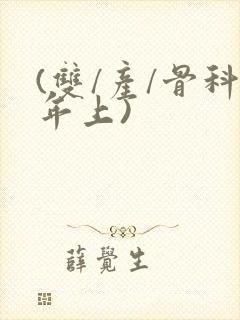 (雙/產/骨科
年上)
薛覺生